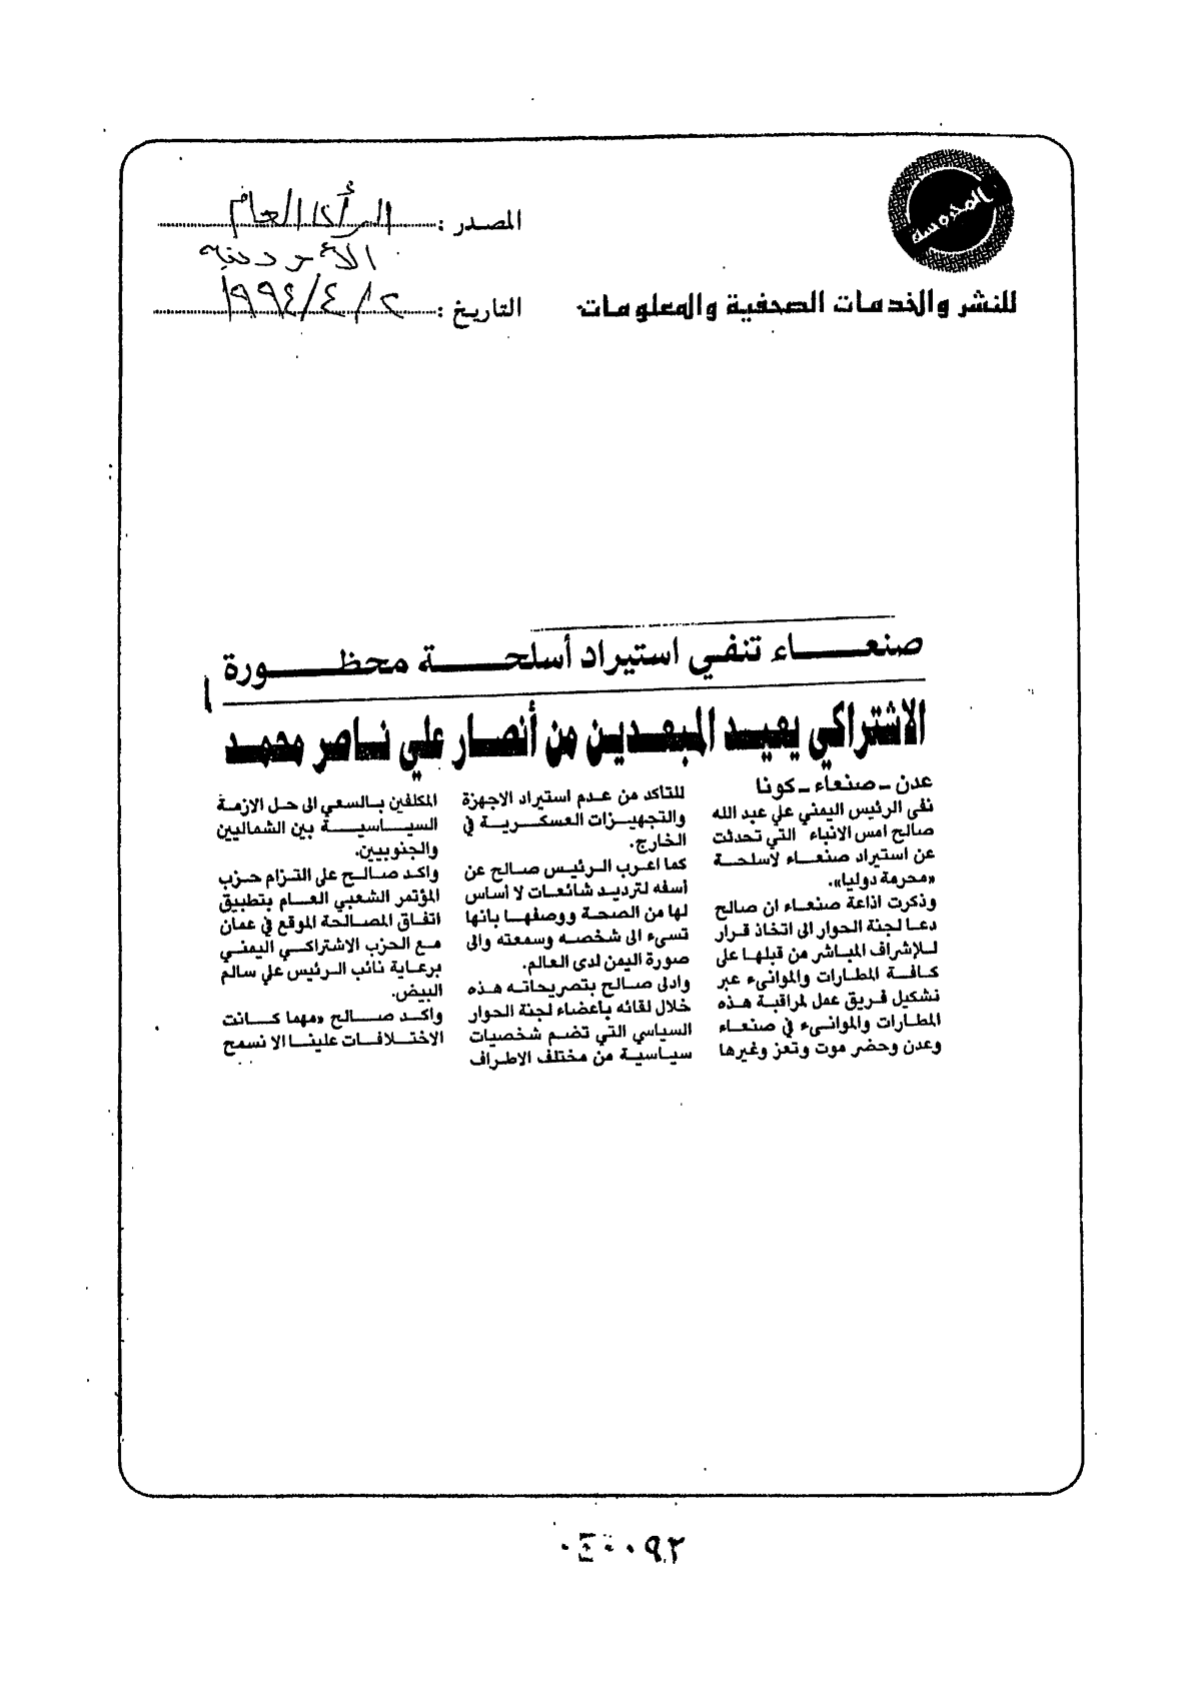 المحروسة
للنشر والخدمات الصحفية والمعلومات
المصدر : الرأى العام
الأردنية
التاريخ : ٢ / ٤ / ١٩٩٤
صنعاء تنفي استيراد أسلحة محظورة
الاشتراكي يعيد المبعدين من أنصار علي ناصر محمد
عدن - صنعاء - كونا
نفى الرئيس اليمني علي عبد الله
صالح امس الانباء التي تحدثت
عن استيراد صنعاء لاسلحة
«محرمة دوليا».
وذكرت اذاعة صنعاء ان صالح
دعا لجنة الحوار الى اتخاذ قرار
للإشراف المباشر من قبلها على
كافة المطارات والموانيء عبر
تشكيل فريق عمل لمراقبة هذه
المطارات والموانيء في صنعاء
وعدن وحضر موت وتعز وغيرها
للتاكد من عدم استيراد الاجهزة
والتجهيزات العسكرية في
الخارج.
كما اعرب الرئيس صالح عن
أسفه لترديد شائعات لا أساس
لها من الصحة ووصفها بانها
تسيء الى شخصه وسمعته والى
صورة اليمن لدى العالم.
وادلى صالح بتصريحاته هذه
خلال لقائه باعضاء لجنة الحوار
السياسي التي تضم شخصيات
سياسية من مختلف الاطراف
المكلفين بالسعي الى حل الازمة
السياسية بين الشماليين
والجنوبيين.
واكد صالح على التزام حزب
المؤتمر الشعبي العام بتطبيق
اتفاق المصالحة الموقع في عمان
مع الحزب الاشتراكي اليمني
برعاية نائب الرئيس علي سالم
البيض.
واكد صالح «مهما كانت
الاختلافات علينا الا نسمح